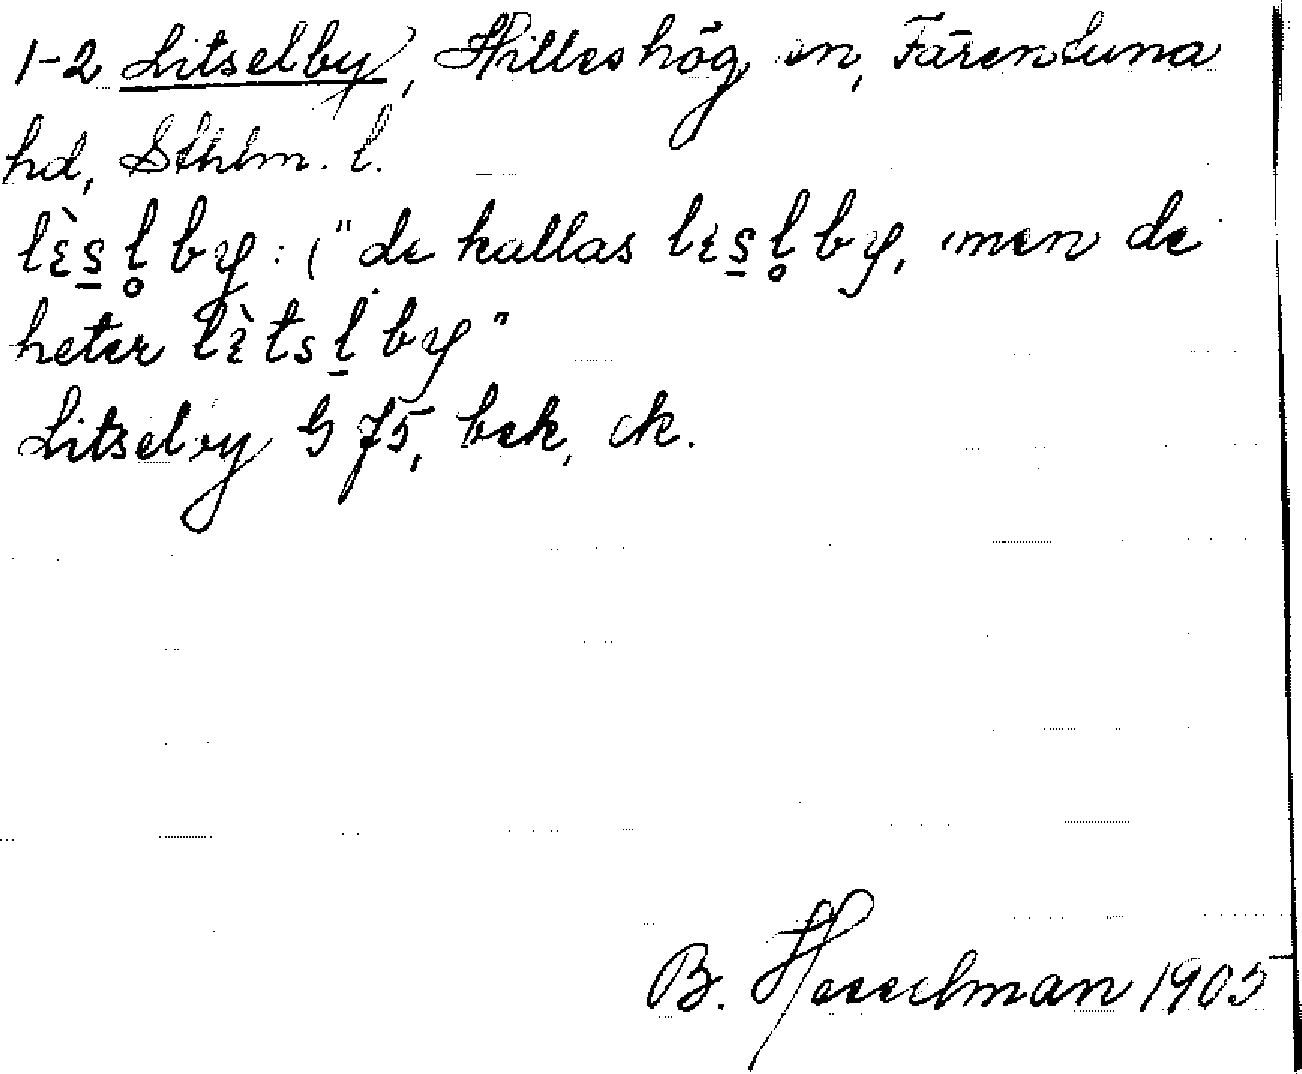 1-2 Litselby, Hilleshög sn, Färentuna
hd, Sthlm. l.
lὲs̱l̥by: ("de kallas lεs̱l̥by, men de
heter lὲtsḻby"
Litselby G 75, bek, ck.
B. Hesselman 1905